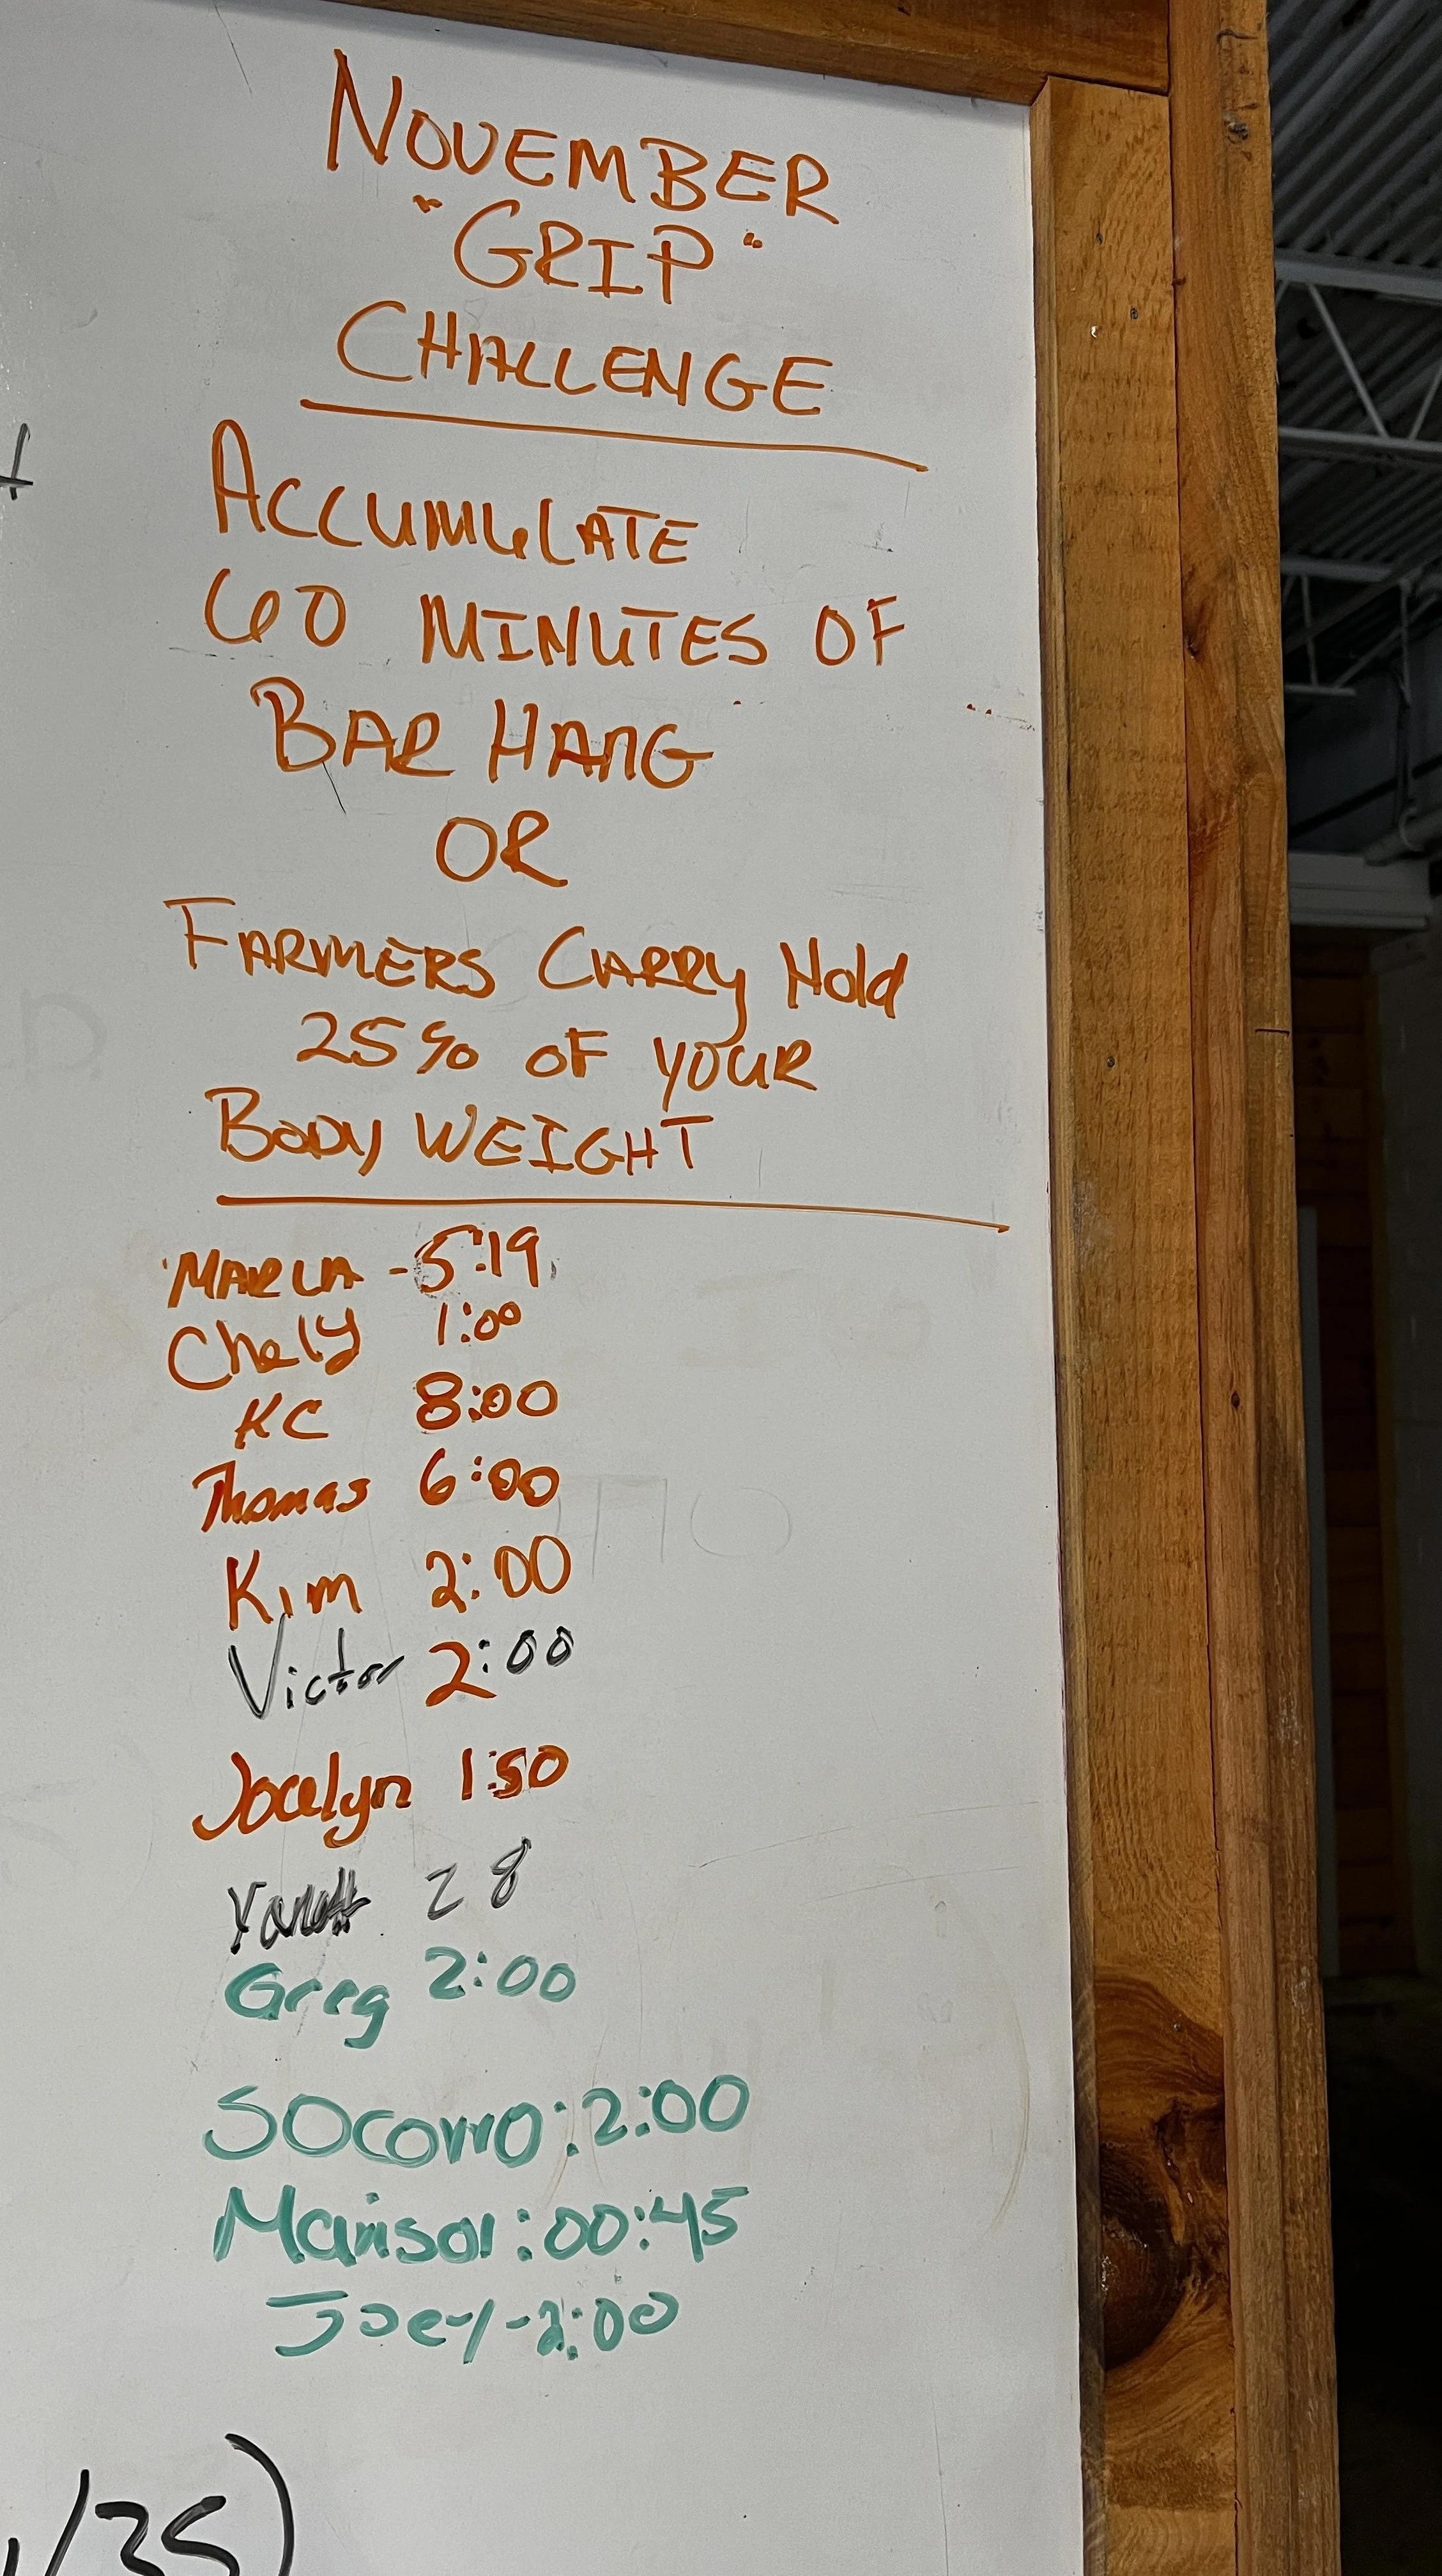 NOVEMBER
"GRIP"
CHALLENGE
ACCUMULATE
60 MINUTES OF
BAR HANG
OR
FARMERS CARRY Hold
25% OF YOUR
BODY WEIGHT
MARLA - 5:19
Chely 1:00
KC 8:00
Thomas 6:00
Kim 2:00
Victor 2:00
Jocelyn 1:50
28
Greg 2:00
SOcorro: 2:00
Marisol: 00:45
Joey - 2:00
/35)